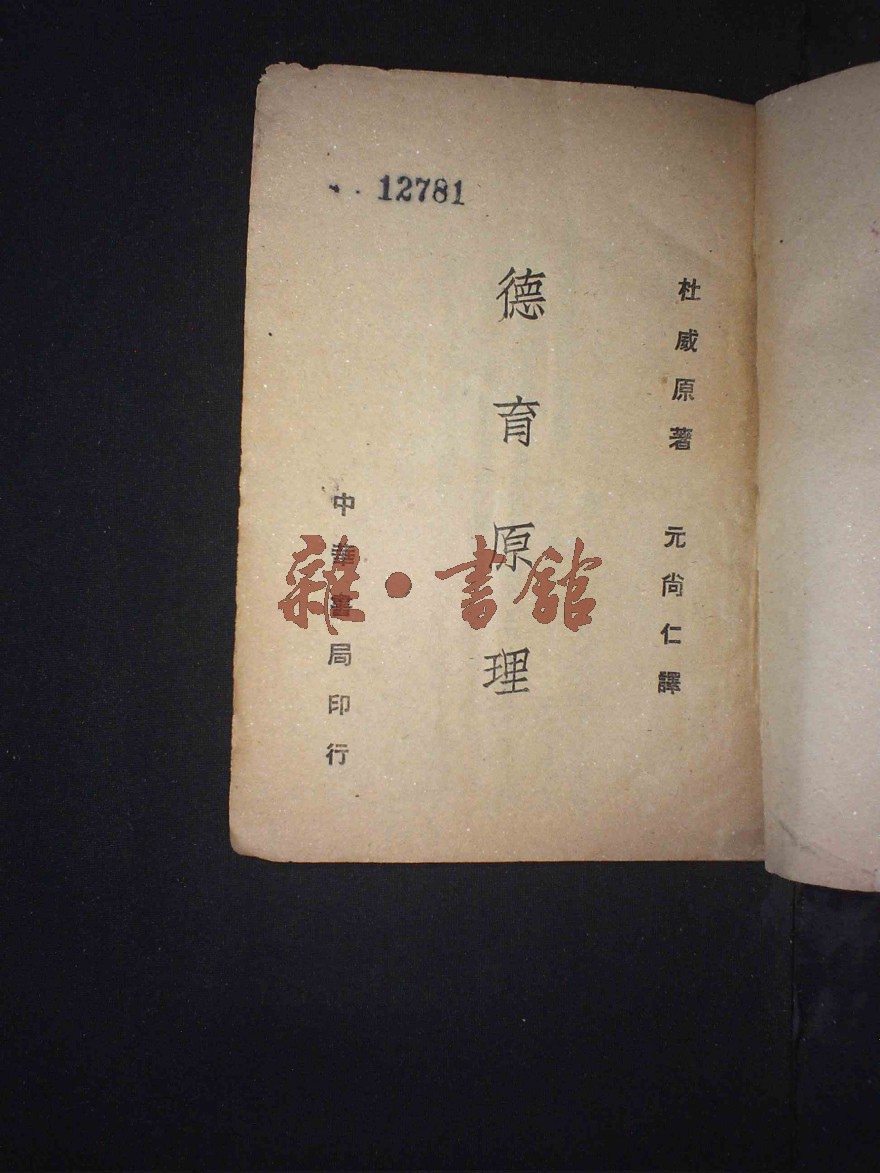 12781
杜威原著 元尙仁譯
德育原理
中華書局印行
雜·書館